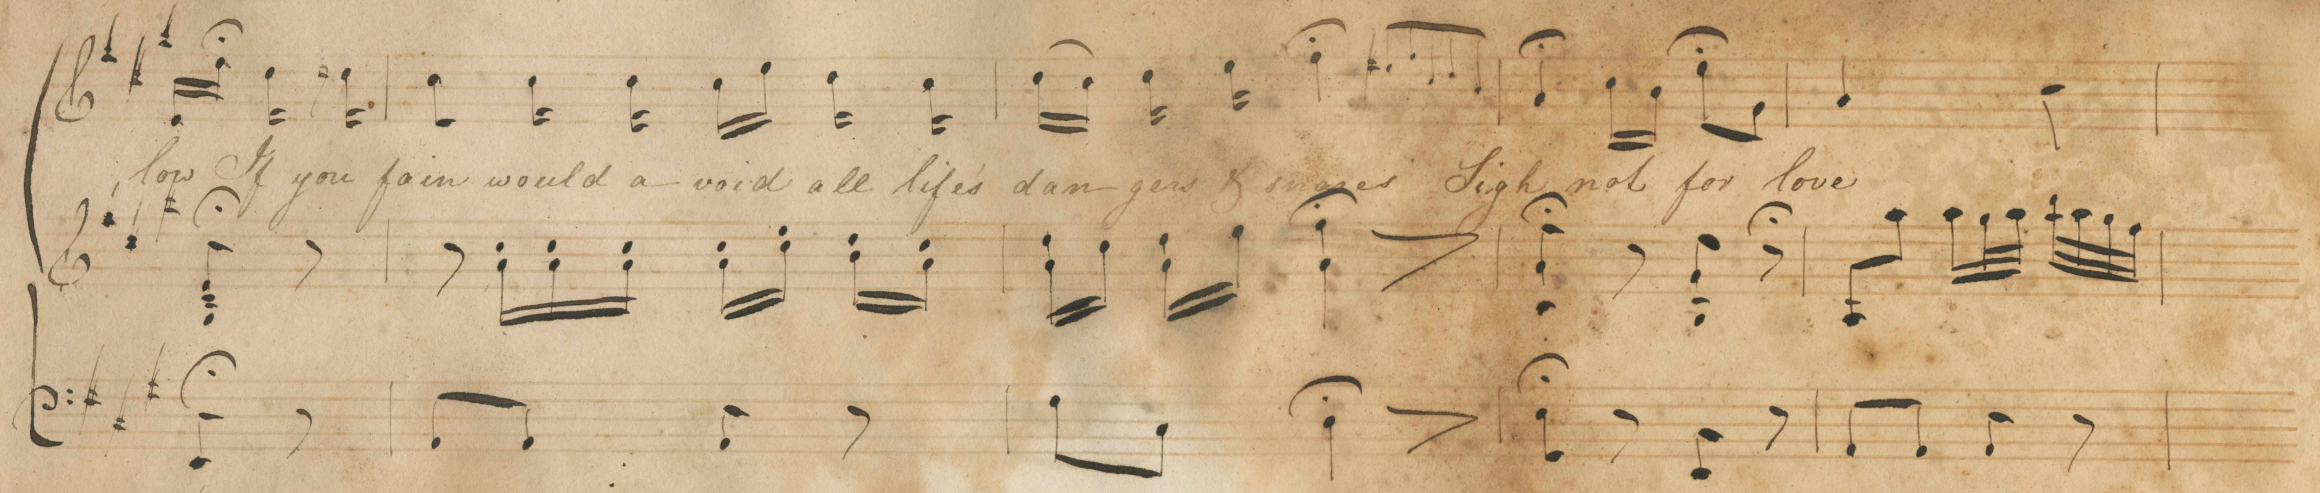 low If you fain would a void all life's dan gers & snares Sigh not for love